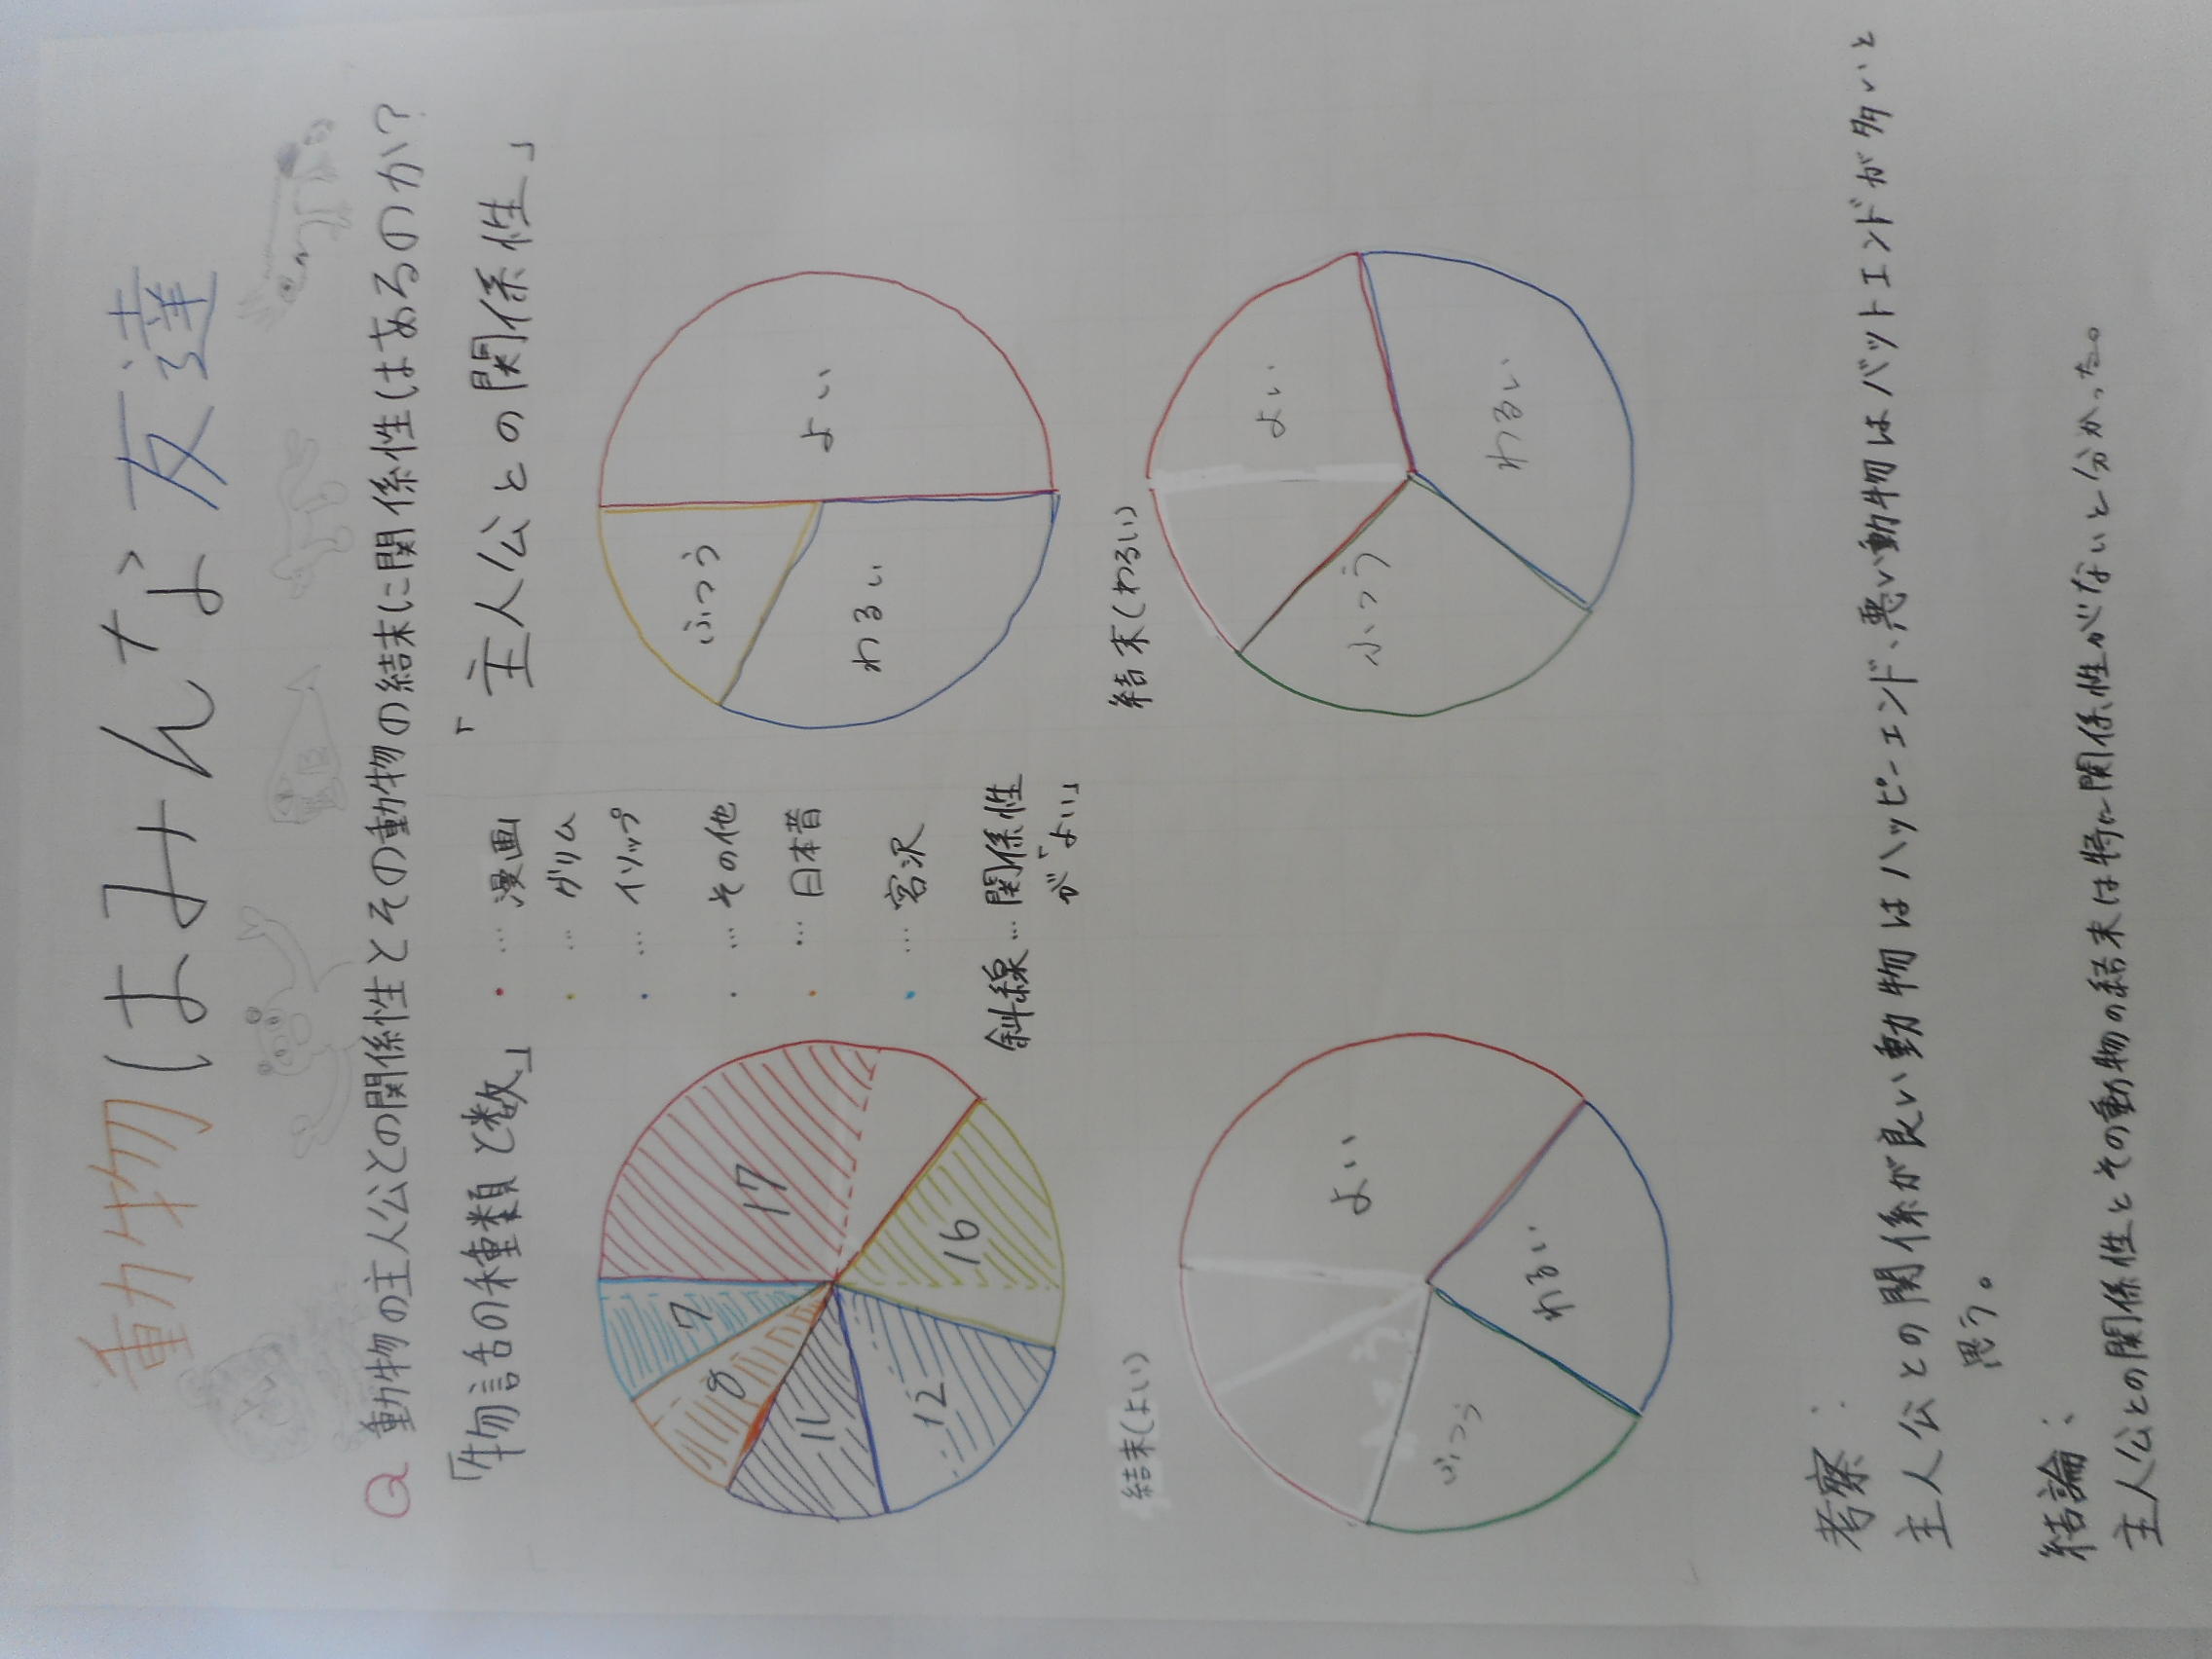 動物はみんな友達
Q 動物の主人公との関係性とその動物の結末に関係性はあるのか?
「物語の種類と数」
17
16
12
11
8
7
・…漫画
・…グリム
・…イソップ
・…その他
・…日本昔
・…宮沢
斜線…関係性
が「よい」
「主人公との関係性」
よい
わるい
ふつう
結末(よい)
よい
わるい
ふつう
結末(わるい)
よい
わるい
ふつう
考察:
主人公との関係が良い動物はハッピーエンド、悪い動物はバットエンドが多いと
思う。
結論:
主人公との関係性とその動物の結末は特に関係性がないと分かった。